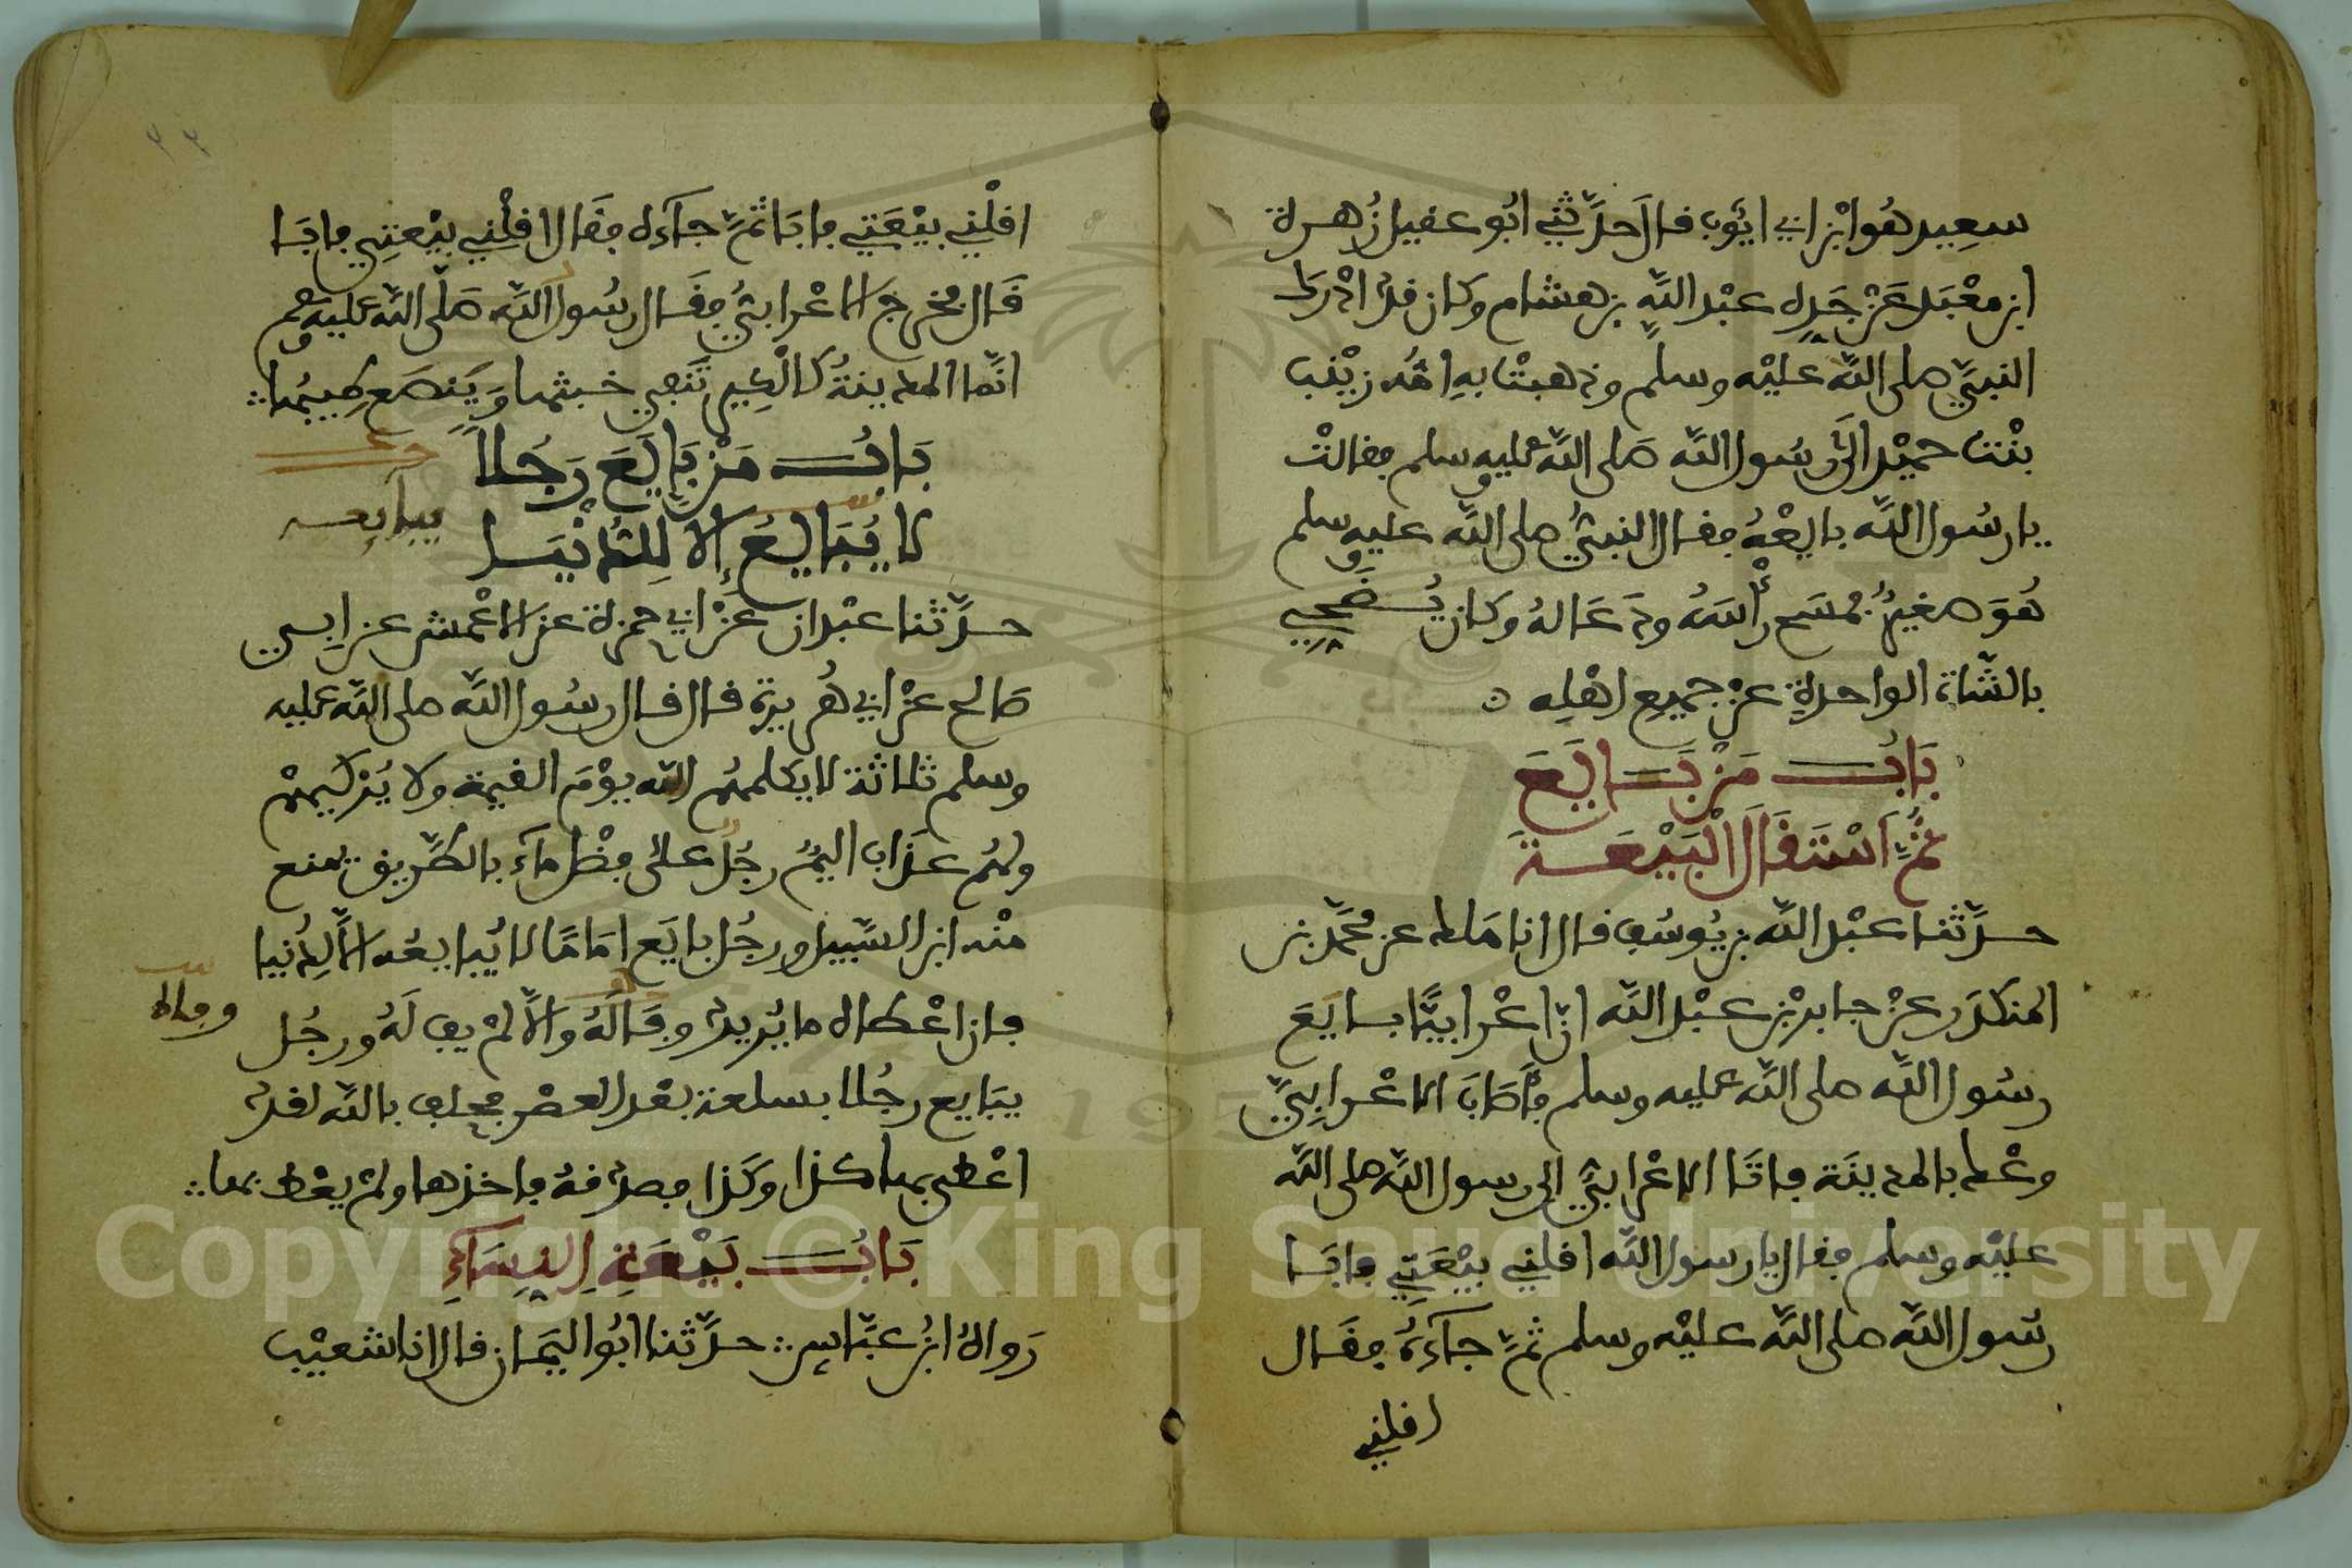 سعيد هُوَ ابْن ابي ايّوب قال حدّثني ابُو عقيل زُهرة
ابن معْبَد عَنْ جَدِّه عبْد اللَّه بن هشام وكان قدْ ادْرَكَ
النبيَّ صلى اللَّه عليْه وسلم وذهبتْ به امُّه زيْنب
بنْت حميْد الَى رسُول اللَّه صَلى اللَّه عليه وسلم فقالتْ
يا رسُول اللَّه بايعْهُ فقال النبيُّ صلى اللَّه عليه وسلم
هُوَ صغيرٌ فمسَح رأْسَهُ ودَعَا لهُ وكان يُضَحِّي
بالشَّاة الواحدةِ عنْ جميع اهْلِه
بَابُ مَنْ بَايَعَ
ثُمَّ اَسْتَقَالَ الْبَيْعَةَ
حدَّثنا عبْد اللَّه بن يُوسُف قال انا مَالك عن محمَّد بن
المنكدَر عنْ جابر بْن عبْد اللَّه انّ اعْرابيًّا بايَعَ
رسُول اللَّه صلى اللَّه عليه وسلم فأَصَابَ الاعْرابِيَّ
وعْك بالمدينَة فاتَا الاعْرابيُّ الى رسول اللَّه صلى اللَّه
عليْه وسلم فقال يا رسول اللَّه اقلني بيْعَتِي فابَا
رسُول اللَّه صلى اللَّه عليْه وسلم ثمَّ جآءَهُ فقَال
اقلني
اقلْني بيْعَتي فابَا ثمَّ جآءَه فقَال اقلْني بيْعتِي فابَا
قَال فخرج الاعْرابيُّ فقَال رسُول اللَّه صَلَّى اللَّه عليه وسلم
انَّما المدينةُ كالْكِير تَنْفي خبثها وَيَنصَع طِيبُها
بَابُ مَنْ بَايَعَ رَجُلاً
لا يُبَايعُ إلا لِلدُّنْيَا
يبايعه
حدَّثنا عبْدان عَنْ ابي حمزة عن الاعْمش عن ابي
صَالح عنْ ابي هُريرة قال قال رسُول اللَّه صلى اللَّه عليه
وسلم ثلاثة لا يكلمهُم اللَّه يوْمَ القيمة ولا يُزكّيهمْ
ولهُم عذاب اليمٌ رجُلٌ علَى فضْل مآءٍ بالطَّريق يمنع
منْه ابن السَّبيل ورجُل بايَع امَامًا لا يُبايعُه الاَّ لِدُنْيا
فان اعْطاه ما يُريدُ وفَا لَهُ والاَّ لمْ يفِ لَهُ ورجُل
يبَايع رجُلا بسلعة بعْد العصْر فحلف باللَّه لقدْ
اعْطى بها كذا وكَذا فصدَّقهُ فاخذها ولمْ يعْط بها
بَابُ بَيْعَةِ النِّسَاءِ
رَواهُ ابنُ عبَّاسٍ حدَّثنا ابُو اليمَان قال انا شعيْب